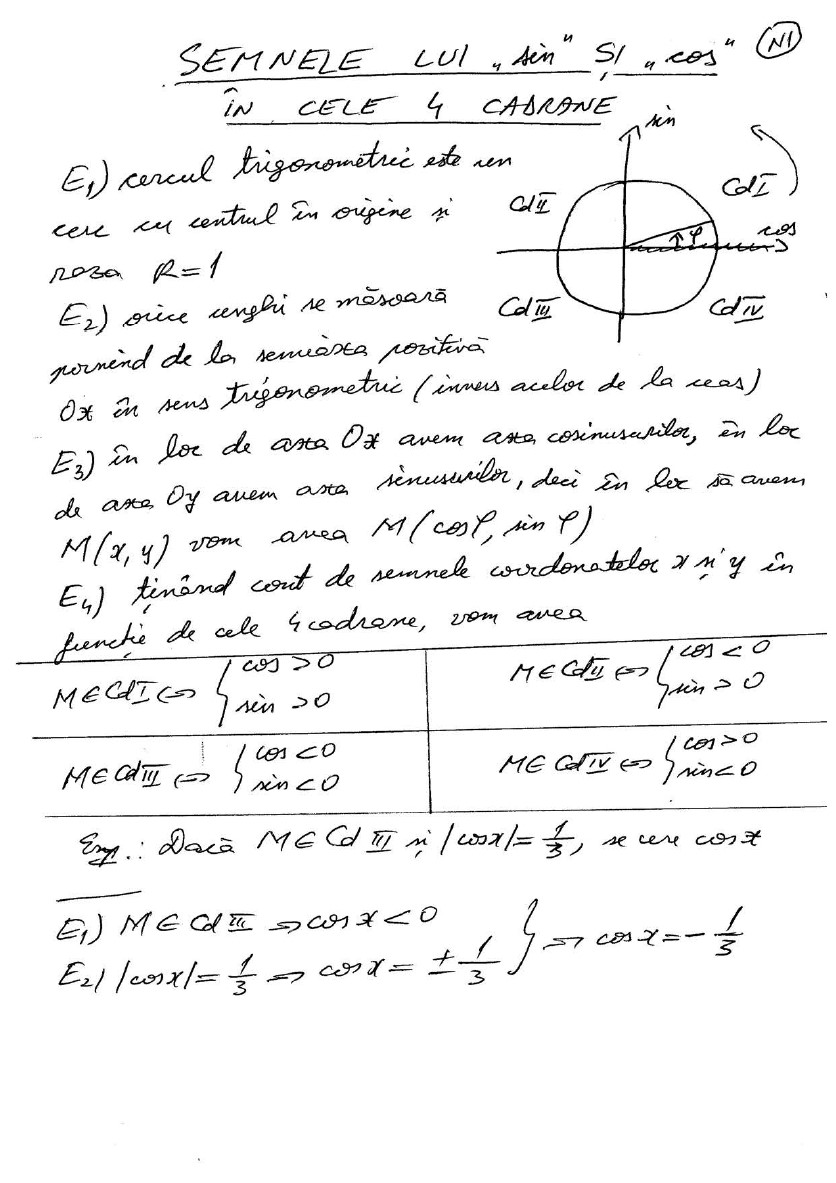 SEMNELE LUI „sin" ȘI „cos"
N1
ÎN CELE 4 CADRANE
sin
E₁) cercul trigonometric este un
cerc cu centrul în origine și
raza R=1
Cd II
Cd I
cos
φ
Cd III
Cd IV
E₂) orice unghi se măsoară
pornind de la semiaxa pozitivă
Ox în sens trigonometric (invers acelor de la ceas)
E₃) în loc de axa Ox avem axa cosinusurilor, în loc
de axa Oy avem axa sinusurilor, deci în loc să avem
M(x, y) vom avea M(cosφ, sin φ)
E₄) ținând cont de semnele coordonatelor x și y în
funcție de cele 4 cadrane, vom avea
M∈Cd I ⇔ { cos >0
sin >0
M∈Cd II ⇔ { cos < 0
sin > 0
M∈Cd III ⇔ { cos <0
sin <0
M∈ Cd IV ⇔ { cos >0
sin <0
Exp.: Dacă M∈ Cd III și |cosx|= 1/3, se cere cosx
E₁) M∈Cd III ⇒ cos x <0
E₂) |cosx|= 1/3 ⇒ cosx = ± 1/3 } ⇒ cosx = - 1/3